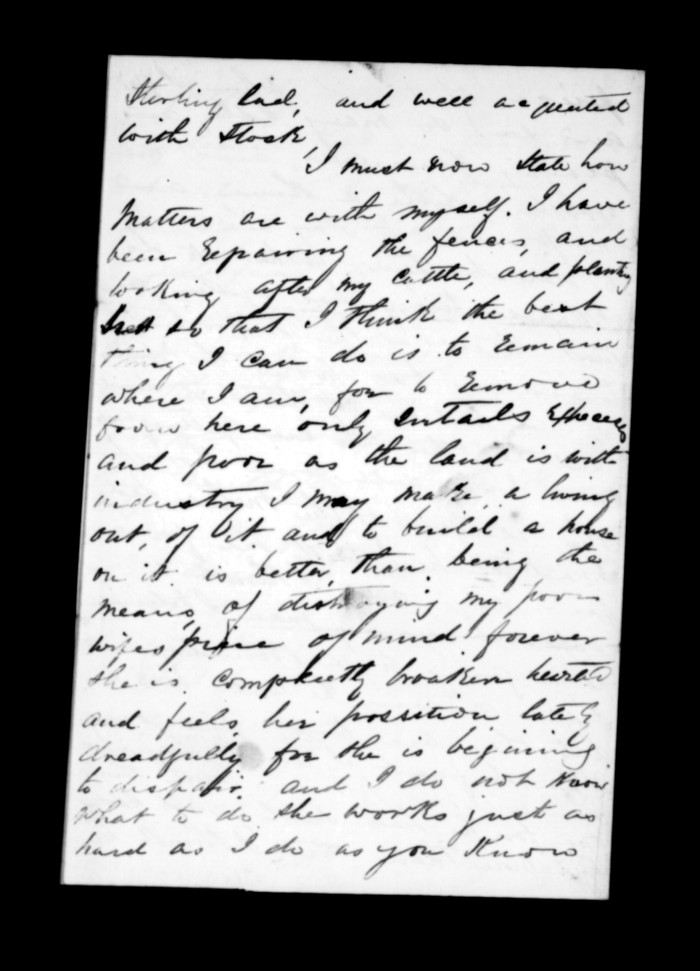 Sterling lad, and well acquated
with stock,
I must now state how
Matters are with myself. I have
been Repairing the fences, and
looking after my cattle, and planting
so that I think the best
thing I can do is to Remain
where I am, for to Remove
from here only Entails Expences
and poor as the land is with
industry I may make a living
out, of it and to build a house
on it is better, than being the
means, of distroying my poor
wifes piece of mind forever
she is completly broaken hearted
and feels, her possition lately
dreadfully for she is begining
to dispair. and I do not know
what to do she works just as
hard as I do as you Know